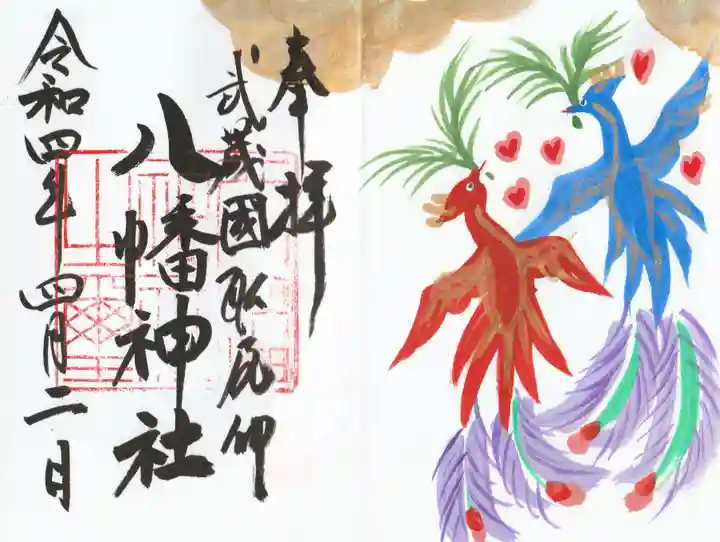 奉拝
武蔵國瓦仰
八幡神社
令和四年 四月二日